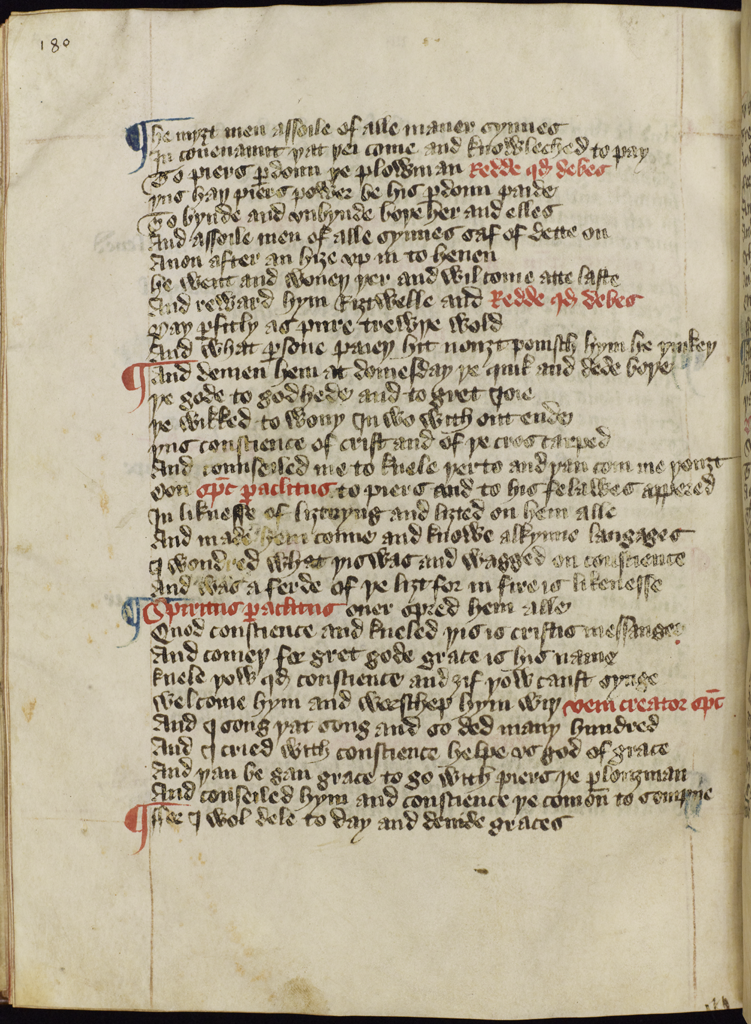 180
¶ he myȝt men assoile of alle maner synnes
In couenaunt þat þei come and knowleched to pay
To piers p̱doun þe plowman Redde qd̕ debes
þus haþ piers power be his p̱doun paide
To bynde and vnbynde boþe her and elles
And assoile men of alle synnes saf of dette on
Anon after an hize vp in to heuen
he went and woneþ þer and wil come atte laste
And reward hym riztwelle and Redde qd̕ debes
Pay p̱fitly as pure trewþe wold
And what p̱sone paieþ hit nouȝt ponisch hym he þinkeþ
¶ And demen hem at domesday þe quik and dede boþe
þe gode to godhede and to gret Ioie
þe wikked to wony In wo with out ende
þus conscience of crist and of þe cros carped
And counseiled me to knele þerto and þan com me þouȝt
Oon sp̄c p̱aclitus to piers and to his felawes appered
In liknesse of liztnyng and lizted on hem alle
And made hem come and knowe alkynne langages
I wondred what þis was and wagged on conscience
And was a ferde of þe lizt for in fire is likenesse
¶ Spiritus p̱aclitus ouer spred hem alle
Quod conscience and kneled þis is cristis messanger
And comeþ fro gret gode grace is his name
knele þow qd̕ conscience and ȝif þow canst synge
welcome hym and worschep hym wiþ veni creator sp̄c
And I song þat song and so ded many hundred
And I cried with conscience helpe vs god of grace
And þan be gan grace to go with piers þe plouȝman
And conseiled hym and conscience þe comon̄ to sompne
¶ ffor I wol dele to day and deuide graces